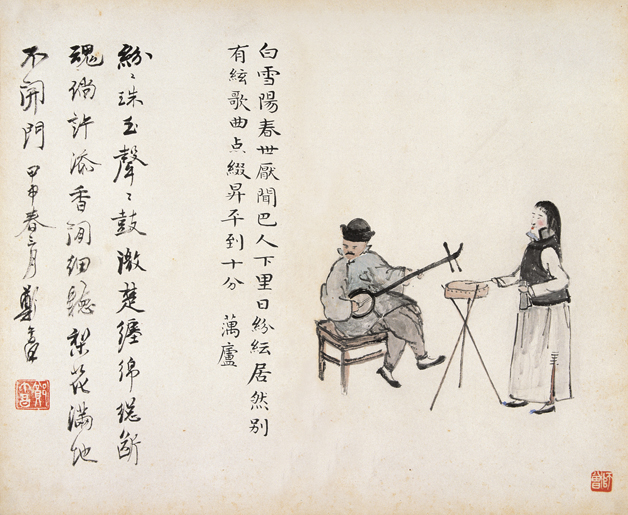 白雪陽春世厭聞巴人下里日紛紜居然別
有絃歌曲点綴昇平到十分 蕅廬
紛〻珠玉聲〻鼓激楚纏綿總斷
魂倘許添香閒細聽梨花滿地
不開門 甲申春三月 鄭
師曾